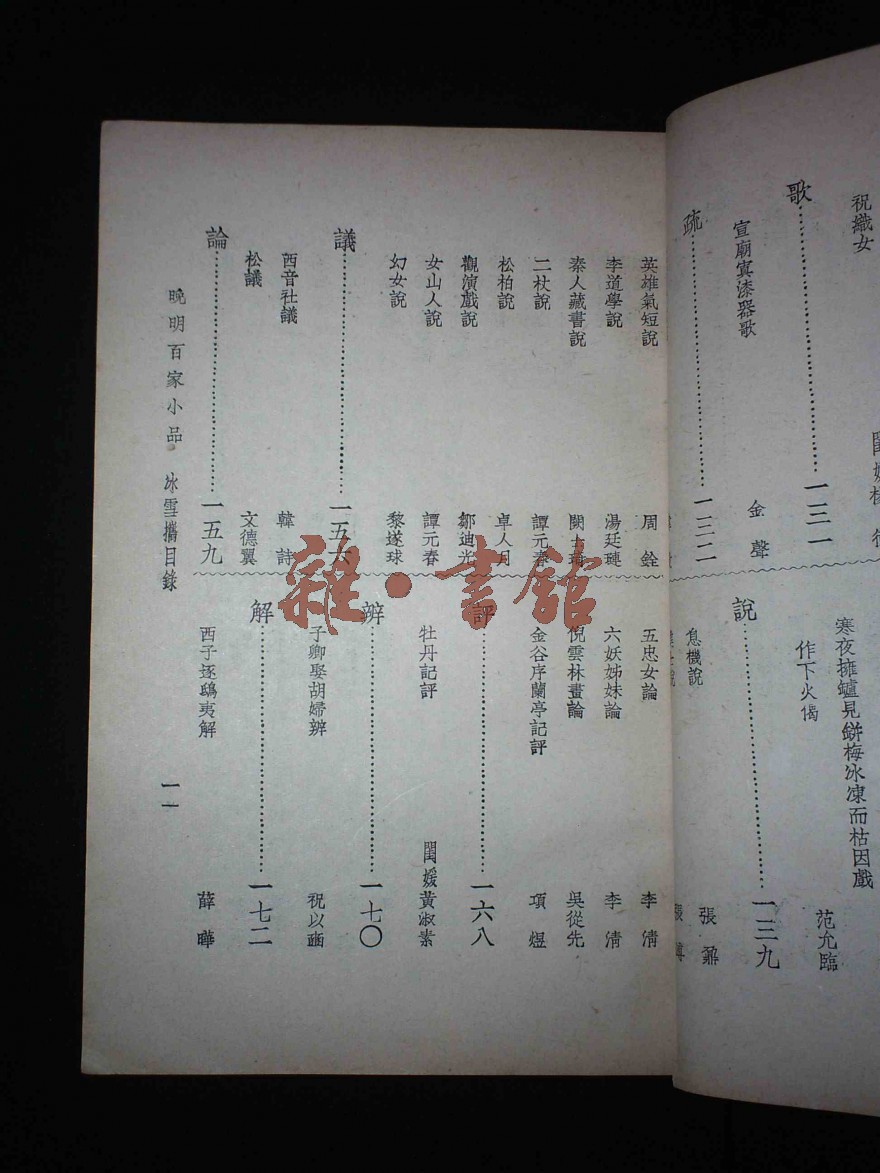 祝織女
歌……一三一
宣廟寘漆器歌 金聲
疏……一三二
寒夜擁罏見缾梅冰凍而枯因戲
作下火偈 范允臨
說……一三九
息機說 張鼐
英雄氣短說 周銓
李道學說 湯廷璉
秦人藏書說
二杖說 譚元春
松柏說 卓人月
觀演戲說 鄒迪光
女山人說 譚元春
幻女說 黎遂球
議……一五六
西音社議 韓詩
松議 文德翼
論……一五九
五忠女論 李淸
六妖姊妹論 李淸
倪雲林畫論 吳從先
金谷序蘭亭記評 項煜
評……一六八
牡丹記評 閨媛黃淑素
辨……一七〇
子卿娶胡婦辨 祝以豳
解……一七二
西子逐鴟夷解 薛曄
晚明百家小品。冰雪攜目錄
一一
雜·書館